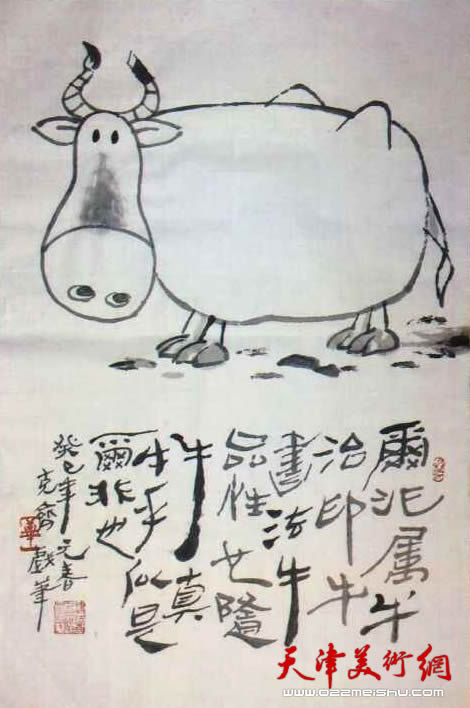 爾属牛
治印牛
書法牛
品性也隨
牛真
牛乎似是
爾非也
癸巳年元春
克戲筆
天津美術網
www.022meishu.com